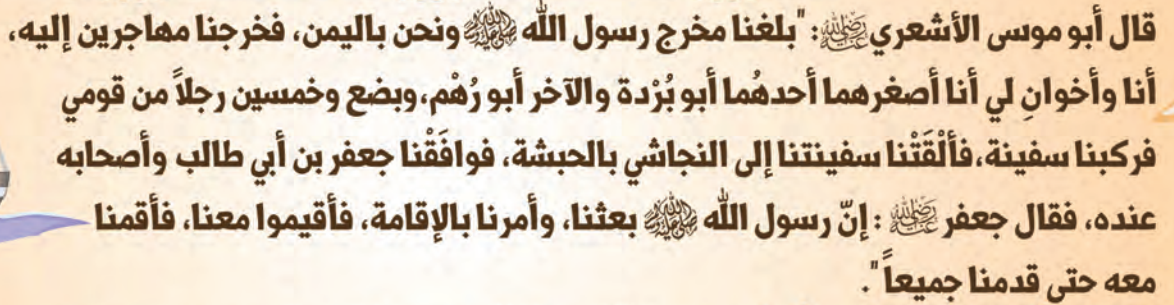 قال أبو موسى الأشعري رضي الله عنه: "بلغنا مخرج رسول الله ﷺ ونحن باليمن، فخرجنا مهاجرين إليه،
أنا وأخوانِ لي أنا أصغرهما أحدهُما أبو بُرْدة والآخر أبو رُهْم،وبضع وخمسين رجلاً من قومي
فركبنا سفينة،فألْقَتْنا سفينتنا إلى النجاشي بالحبشة، فوافَقْنا جعفر بن أبي طالب وأصحابه
عنده، فقال جعفر رضي الله عنه : إنّ رسول الله ﷺ بعثنا، وأمرنا بالإقامة، فأقيموا معنا، فأقمنا
معه حتى قدمنا جميعاً".